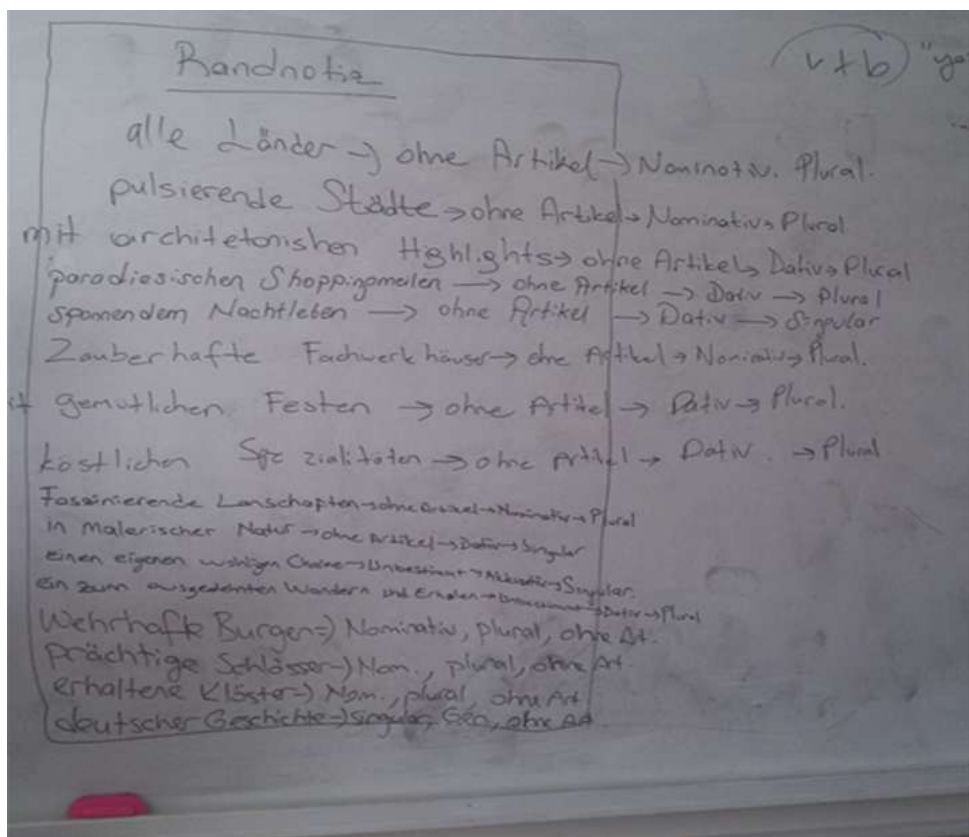 Randnotiz
v+b "ya
alle Länder → ohne Artikel → Nominativ. Plural.
pulsierende Städte → ohne Artikel → Nominativ → Plural
mit architetonishen Highlights → ohne Artikel → Dativ → Plural
paradiesischen Shoppingmeilen → ohne Artikel → Dativ → Plural
spannendem Nachtleben → ohne Artikel → Dativ → Singular
Zauberhafte Fachwerkhäuser → ohne Artikel → Nominativ → Plural.
gemütlichen Festen → ohne Artikel → Dativ → Plural.
köstlichen Spezialitäten → ohne Artikel → Dativ. → Plural
Faszinierende Lanschaften → ohne Artikel → Nominativ → Plural
in malerischer Natur → ohne Artikel → Dativ → Singular
einen eigenen Charme → Unbestimmt → Akkusativ → Singular.
ein zum ausgedehnten Wandern und Erholen → Unbestimmt → Dativ → Plural
Wehrhafte Burgen → Nominativ, plural, ohne Art.
prächtige Schlösser → Nom., plural, ohne Art.
erhaltene Klöster → Nom., plural, ohne Art
deutscher Geschichte → Singular, Gen, ohne Art